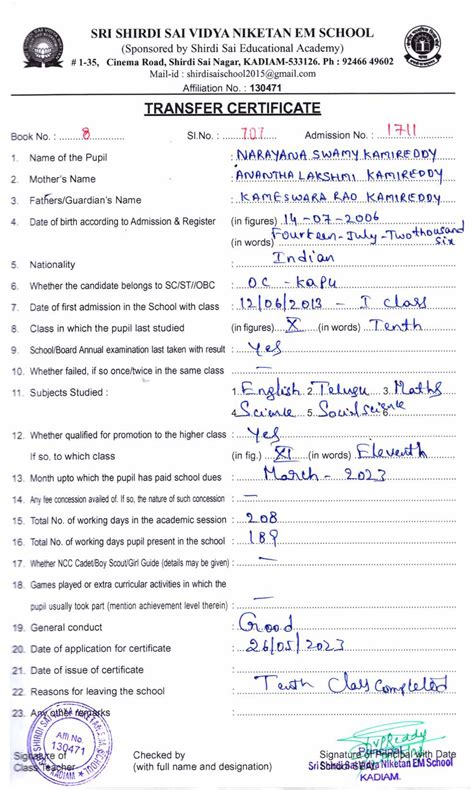 SRI SHIRDI SAI VIDYA NIKETAN EM SCHOOL
(Sponsored by Shirdi Sai Educational Academy)
# 1-35, Cinema Road, Shirdi Sai Nagar, KADIAM-533126. Ph : 92466 49602
Mail-id : shirdisaischool2015@gmail.com
Affiliation No. : 130471
TRANSFER CERTIFICATE
Book No. : 8 Sl.No. : 707 Admission No. : 1711
1. Name of the Pupil : NARAYANA SWAMY KAMIREDDY
2. Mother's Name : ANANTHA LAKSHMI KAMIREDDY
3. Fathers/Guardian's Name : KAMESWARA RAO KAMIREDDY
4. Date of birth according to Admission & Register (in figures) 14-07-2006
(in words) Fourteen-July-Twothousand six
5. Nationality : Indian
6. Whether the candidate belongs to SC/ST//OBC : OC - Kapu
7. Date of first admission in the School with class : 12/06/2013 - I Class
8. Class in which the pupil last studied (in figures) X (in words) Tenth
9. School/Board Annual examination last taken with result : Yes
10. Whether failed, if so once/twice in the same class : —
11. Subjects Studied : 1. English 2. Telugu 3. Maths
4. Science 5. Social science 6.
12. Whether qualified for promotion to the higher class : Yes
If so, to which class (in fig.) XI (in words) Eleventh
13. Month upto which the pupil has paid school dues : March - 2023
14. Any fee concession availed of. If so, the nature of such concession : —
15. Total No. of working days in the academic session : 208
16. Total No. of working days pupil present in the school : 189
17. Whether NCC Cadet/Boy Scout/Girl Guide (details may be given) : —
18. Games played or extra curricular activities in which the
pupil usually took part (mention achievement level therein) : —
19. General conduct : Good
20. Date of application for certificate : 26/05/2023
21. Date of issue of certificate :
22. Reasons for leaving the school : Tenth Class Completed
23. Any other remarks
Affi No.
130471
KADIAM
Signature of Checked by Signature of Principal with Date
Class Teacher (with full name and designation) Sri Shirdi Sai Vidya Niketan EM School
KADIAM.